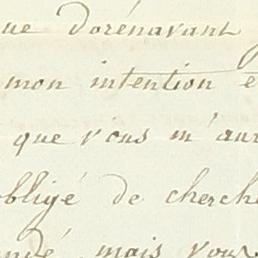 ue dorénavant
mon intention e
que vous m'aur
obligé de cherche
mais vous